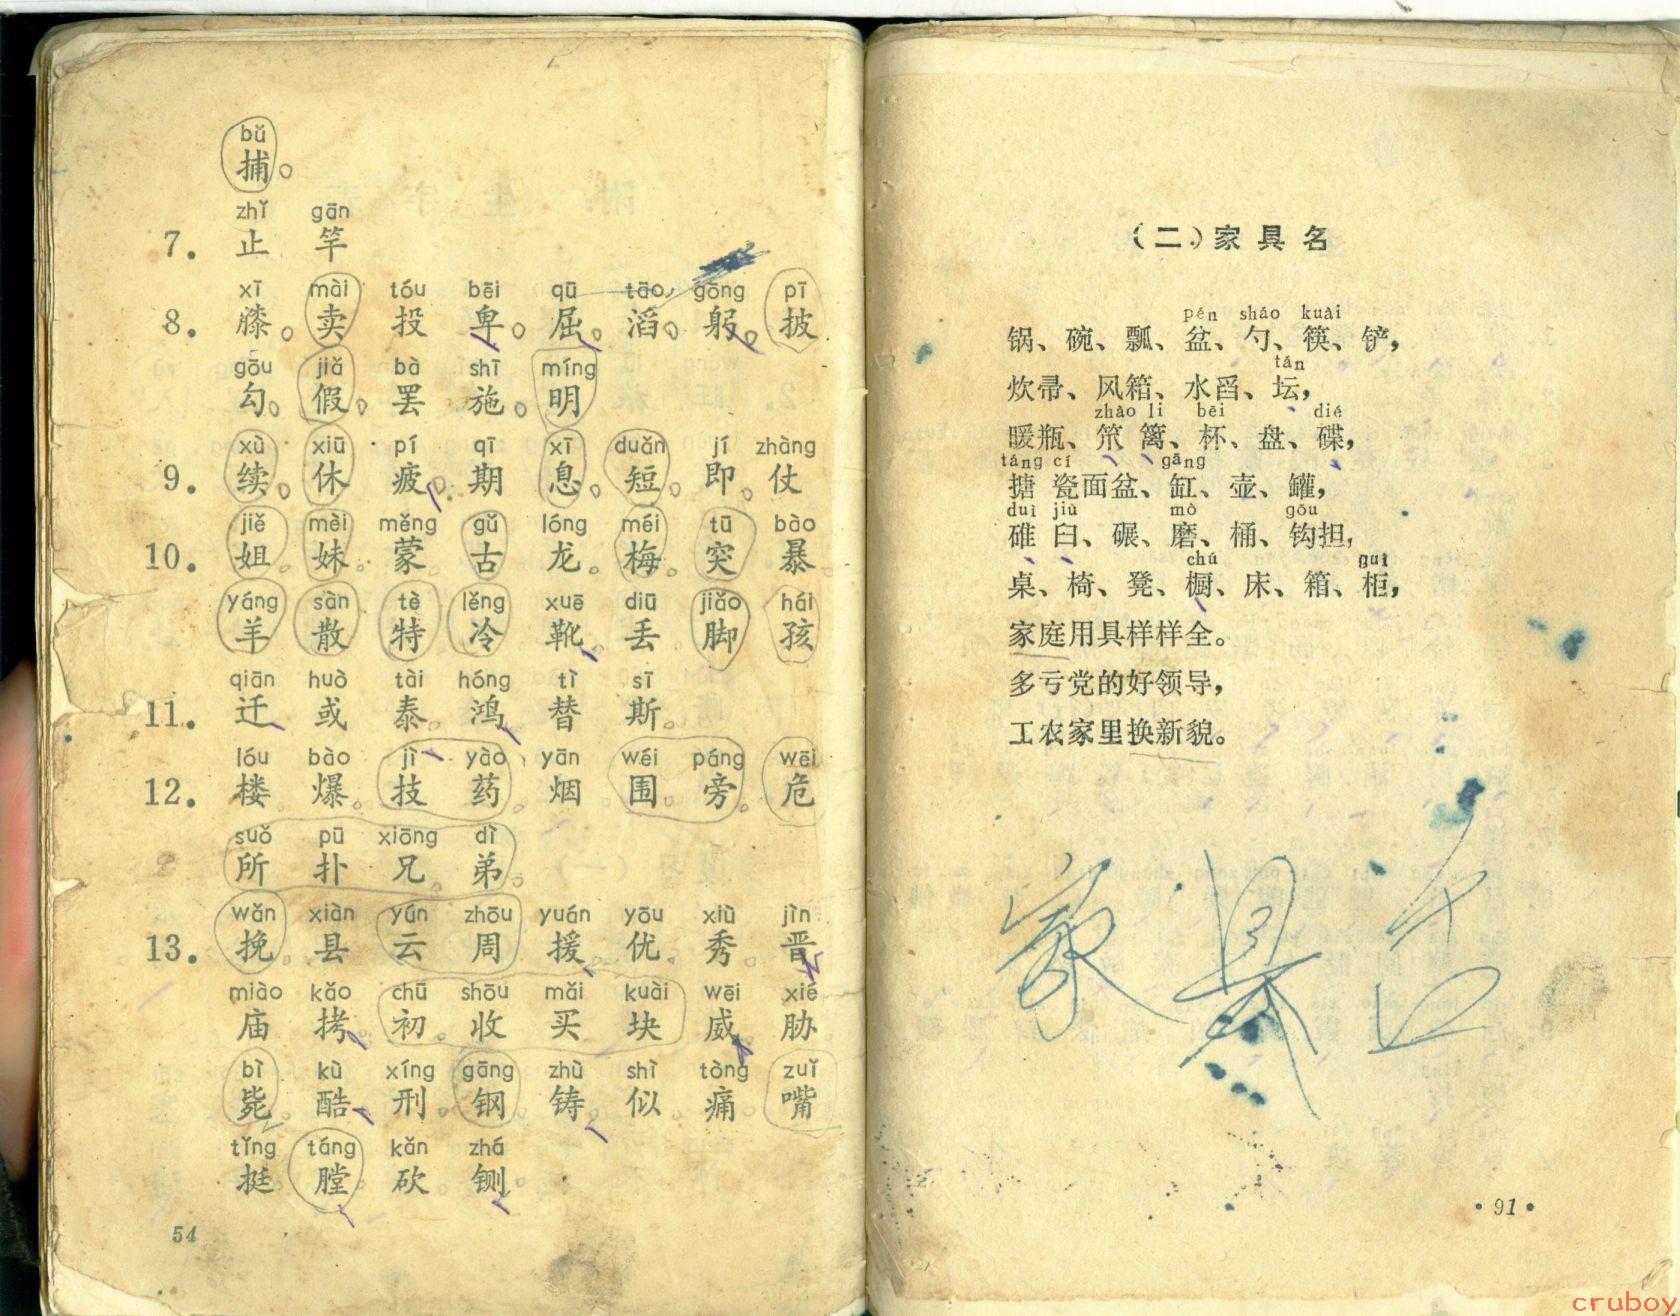 bǔ
捕。
zhǐ gān
7. 止 竿
xī mài tóu bēi qū tāo gōng pī
8. 膝。卖 投 卑。屈。滔。躬。披
gōu jiǎ bà shī míng
勾。假。罢 施。明
xù xiū pí qī xī duǎn jí zhàng
9. 续。休 疲。期 息。短。即。仗
jiě mèi měng gǔ lóng méi tū bào
10. 姐。妹。蒙。古 龙。梅。突 暴
yáng sàn tè lěng xuē diū jiǎo hái
羊 散 特 冷 靴 丢 脚 孩
qiān huò tài hóng tì sī
11. 迁 或 泰。鸿 替 斯。
lóu bào jì yào yān wéi páng wēi
12. 楼。爆。技 药。烟。围。旁。危
suǒ pū xiōng dì
所 扑 兄。弟。
wǎn xiàn yún zhōu yuán yōu xiù jìn
13. 挽。县 云 周 援。优。秀。晋
miào kǎo chū shōu mǎi kuài wēi xié
庙 拷 初。收 买 块 威 胁
bì kù xíng gāng zhù shì tòng zuǐ
毙。酷 刑。钢 铸 似。痛。嘴
tǐng táng kǎn zhá
挺 膛 砍 铡
54
(二)家具名
pén sháo kuài
锅、碗、瓢、盆、勺、筷、铲，
tán
炊帚、风箱、水舀、坛，
zhào li bēi dié
暖瓶、笊篱、杯、盘、碟，
táng cí gāng
搪瓷面盆、缸、壶、罐，
duì jiù mò gōu
碓臼、碾、磨、桶、钩担，
chú guì
桌、椅、凳、橱、床、箱、柜，
家庭用具样样全。
多亏党的好领导，
工农家里换新貌。
家具名
•91•
cruboy